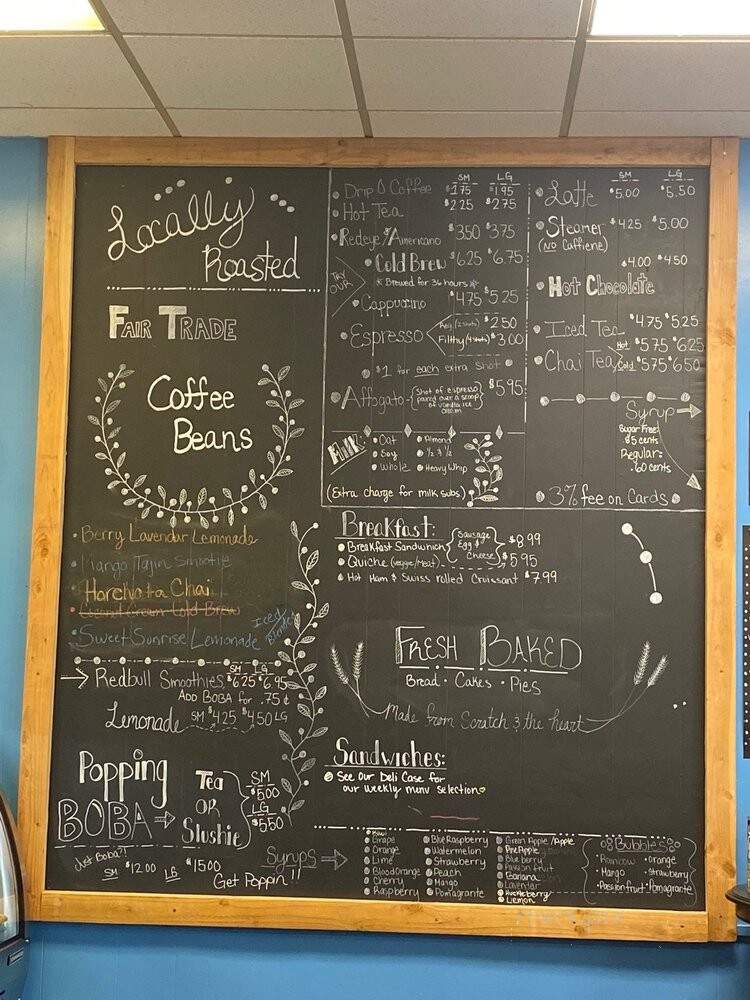 Locally
Roasted
FAIR TRADE
Coffee
Beans
• Berry Lavendar Lemonade
• Mango Tajin Smootie
• Coconut Cream Cold Brew
• Sweet Sunrise Lemonade
Iced
SM LG
Redbull Smoothies $6.25 $6.95
ADD BOBA for .75¢
Lemonade SM $4.25 $4.50 LG
Popping
BOBA
Tea
OR
Slushie
SM
$5.00
LG
$5.50
Just Boba?!
SM $12.00 LG $15.00
Get Poppin'!!
SM LG
Drip Coffee $1.75 $1.95
Hot Tea $2.25 $2.75
Redeye/Americano $3.50 $3.75
TRY
OUR
Cold Brew $6.25 $6.75
* Brewed for 36 hours *
Cappuccino $4.75 $5.25
Espresso
Reg. (2 shots) $2.50
Filthy (4 shots) $3.00
$1 for each extra shot
Affogato
Shot of espresso
poured over a scoop
of vanilla ice
cream
$5.95
MILK
• Oat
• Soy
• Whole
• Almond
• ½ & ½
• Heavy Whip
(Extra charge for milk subs)
SM LG
Latte $5.00 $5.50
Steamer $4.25 $5.00
(NO Caffiene)
$4.00 $4.50
Hot Chocolate
Iced Tea $4.75 $5.25
Chai Tea
Hot $5.75 $6.25
Cold $5.75 $6.50
Syrup
Sugar Free:
$5 cents
Regular:
.60 cents
• 3% fee on Cards •
Breakfast:
Breakfast Sandwhich
Sausage
Egg &
Cheese
$8.99
Quiche (veggie/Meat) $5.95
Hot Ham & Swiss rolled Croissant $7.99
FRESH BAKED
Bread • Cakes • Pies
Made from Scratch & the heart
Sandwiches:
See Our Deli Case for
our weekly menu selection
Syrups
Grape
Orange
Lime
Blood Orange
Cherry
Raspberry
Blue Raspberry
Watermelon
Strawberry
Peach
Mango
Pomagrante
Green Apple/Apple
PineApple
Blueberry
Passion fruit
Banana
Lavender
Huckleberry
Lemon
Bubbles
• Rainbow • Orange
• Mango • Strawberry
• Passionfruit • Pomagrante